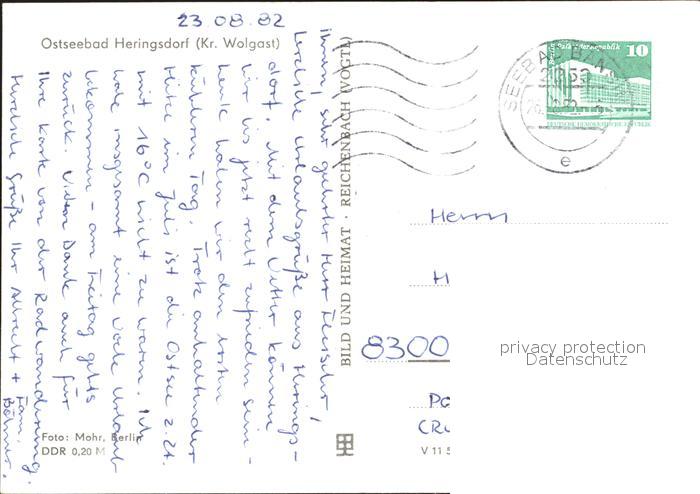 23.08.82
Ostseebad Heringsdorf (Kr. Wolgast)
Ihnen, sehr geehrter Herr Fleischer,
herzliche Urlaubsgrüße aus Herings-
dorf. Mit dem Wetter können
wir bis jetzt recht zufrieden sein -
heute haben wir den ersten
kühleren Tag. Trotz anhaltender
Hitze im Juli ist die Ostsee z. Zt.
mit 16°C nicht zu warm. Ich
habe insgesamt eine Woche Urlaub
bekommen - am Freitag gehts
zurück. Vielen Dank auch für
Ihre Karte von der Radwanderung.
Herzliche Grüße Ihr Albrecht + Fam.
Foto: Mohr, Berlin
DDR 0,20 M
BILD UND HEIMAT · REICHENBACH (VOGTL)
V 11 5
10
DEUTSCHE DEMOKRATISCHE REPUBLIK
SEEBAD
2253
e
Herrn
H
8300
privacy protection
Datenschutz